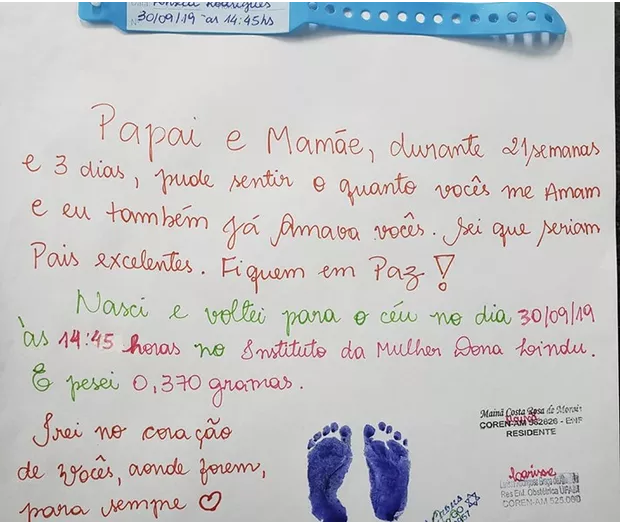 Rodrigues
30/09/19 às 14:45hs
Papai e Mamãe, durante 21 semanas
e 3 dias, pude sentir o quanto vocês me Amam
e eu também já Amava vocês. Sei que seriam
Pais excelentes. Fiquem em Paz!
Nasci e voltei para o céu no dia 30/09/19
às 14:45 horas no Instituto da Mulher Dona Lindu.
E pesei 0,370 gramas.
Irei no coração
de vocês, aonde forem,
para sempre
Mainã Costa Rosa de Morais
COREN-AM - ENF
RESIDENTE
Larisse
Res Enf. Obstétrica
COREN-AM 525.080